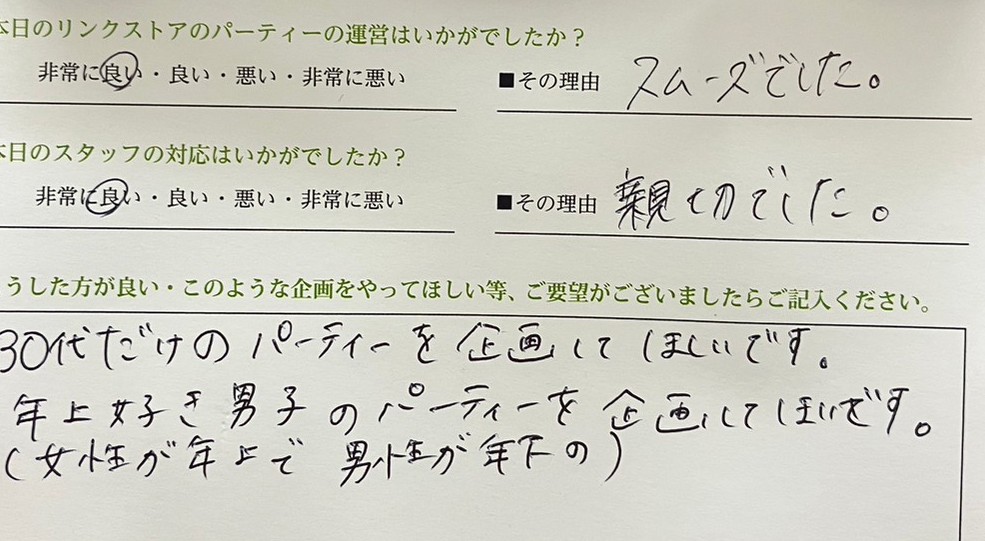 本日のリンクストアのパーティーの運営はいかがでしたか？
非常に良い・良い・悪い・非常に悪い ■その理由 スムーズでした。
本日のスタッフの対応はいかがでしたか？
非常に良い・良い・悪い・非常に悪い ■その理由 親切でした。
うした方が良い・このような企画をやってほしい等、ご要望がございましたらご記入ください。
30代だけのパーティーを企画してほしいです。
年上好き男子のパーティーを企画してほしいです。
(女性が年上で男性が年下の)